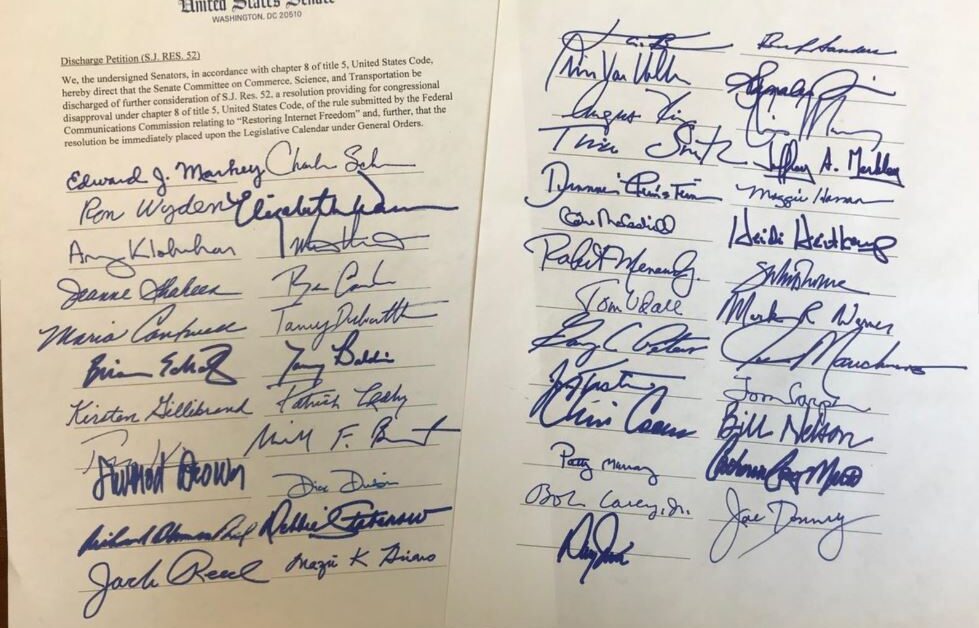 United States Senate
WASHINGTON, DC 20510
Discharge Petition (S.J. RES. 52)
We, the undersigned Senators, in accordance with chapter 8 of title 5, United States Code,
hereby direct that the Senate Committee on Commerce, Science, and Transportation be
discharged of further consideration of S.J. Res. 52, a resolution providing for congressional
disapproval under chapter 8 of title 5, United States Code, of the rule submitted by the Federal
Communications Commission relating to “Restoring Internet Freedom” and, further, that the
resolution be immediately placed upon the Legislative Calendar under General Orders.
Edward J. Markey
Ron Wyden Elizabeth Warren
Amy Klobuchar
Jeanne Shaheen Ben Cardin
Maria Cantwell Tammy Duckworth
Brian Schatz Tammy Baldwin
Kirsten Gillibrand Patrick Leahy
Sherrod Brown Dick Durbin
Richard Blumenthal Debbie Stabenow
Jack Reed Mazie K Hirono
Sanders
Chris Van Hollen
Angus King
Tina Smith Jeffrey A. Merkley
Dianne Feinstein Maggie Hassan
Heidi Heitkamp
Robert Menendez
Tom Udall Mark R Warner
Gary C Peters
Tom Carper
Chris Coons Bill Nelson
Patty Murray Catherine Cortez Masto
Bob Casey, Jr. Joe Donnelly